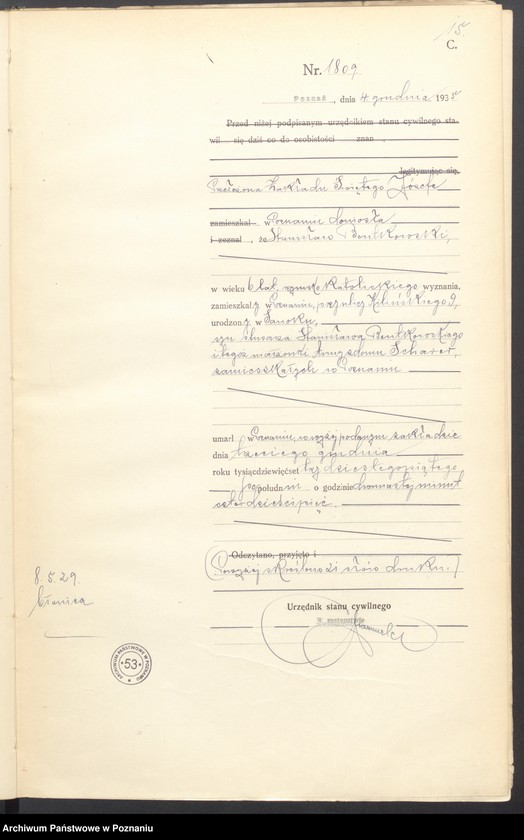 15
C.
Nr. 1809
Poznań, dnia 4 grudnia 1935
Przed niżej podpisanym urzędnikiem stanu cywilnego sta-
wił się dziś co do osobistości znan
legitymując się
Przełożona Zakładu Świętego Józefa
zamieszkał w Poznaniu doniosła
i zeznał, że Stanisław Bentkowski,
w wieku 6 lat, rzymsko katolickiego wyznania,
zamieszkały w Poznaniu, przy ulicy Kilińskiego 9,
urodzony w Sanoku,
syn Stanisława Bentkowskiego
i tegoż małżonki domu Scharer,
zamieszkałych w Poznaniu
umarł w Poznaniu, w wyżej podanym zakładzie
dnia trzeciego grudnia
roku tysiącdziewięćset trzydziestego piątego
po południu o godzinie dwunastej minut
czterdzieści pięć.
Odczytano, przyjęto i
(Powyżej skreślono słów druku.)
Urzędnik stanu cywilnego
W zastępstwie
8.5.29.
ARCHIWUM PAŃSTWOWE W POZNANIU
53
Archiwum Państwowe w Poznaniu